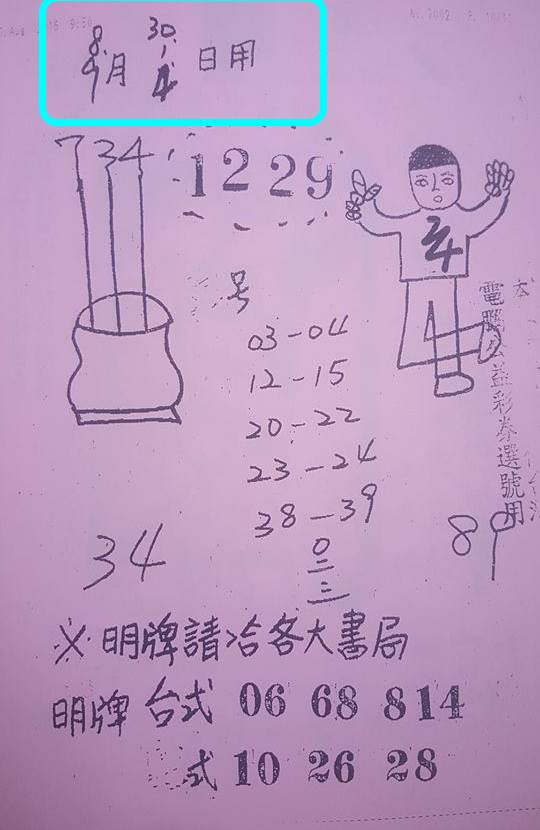 8 30
9月 1 4 日用
7 3 4
1229
号
03-04
12-15
20-22
23-24
38-39
34
89
電腦公益彩券選號用
※明牌請洽各大書局
明牌 台式 06 68 814
式 10 26 28